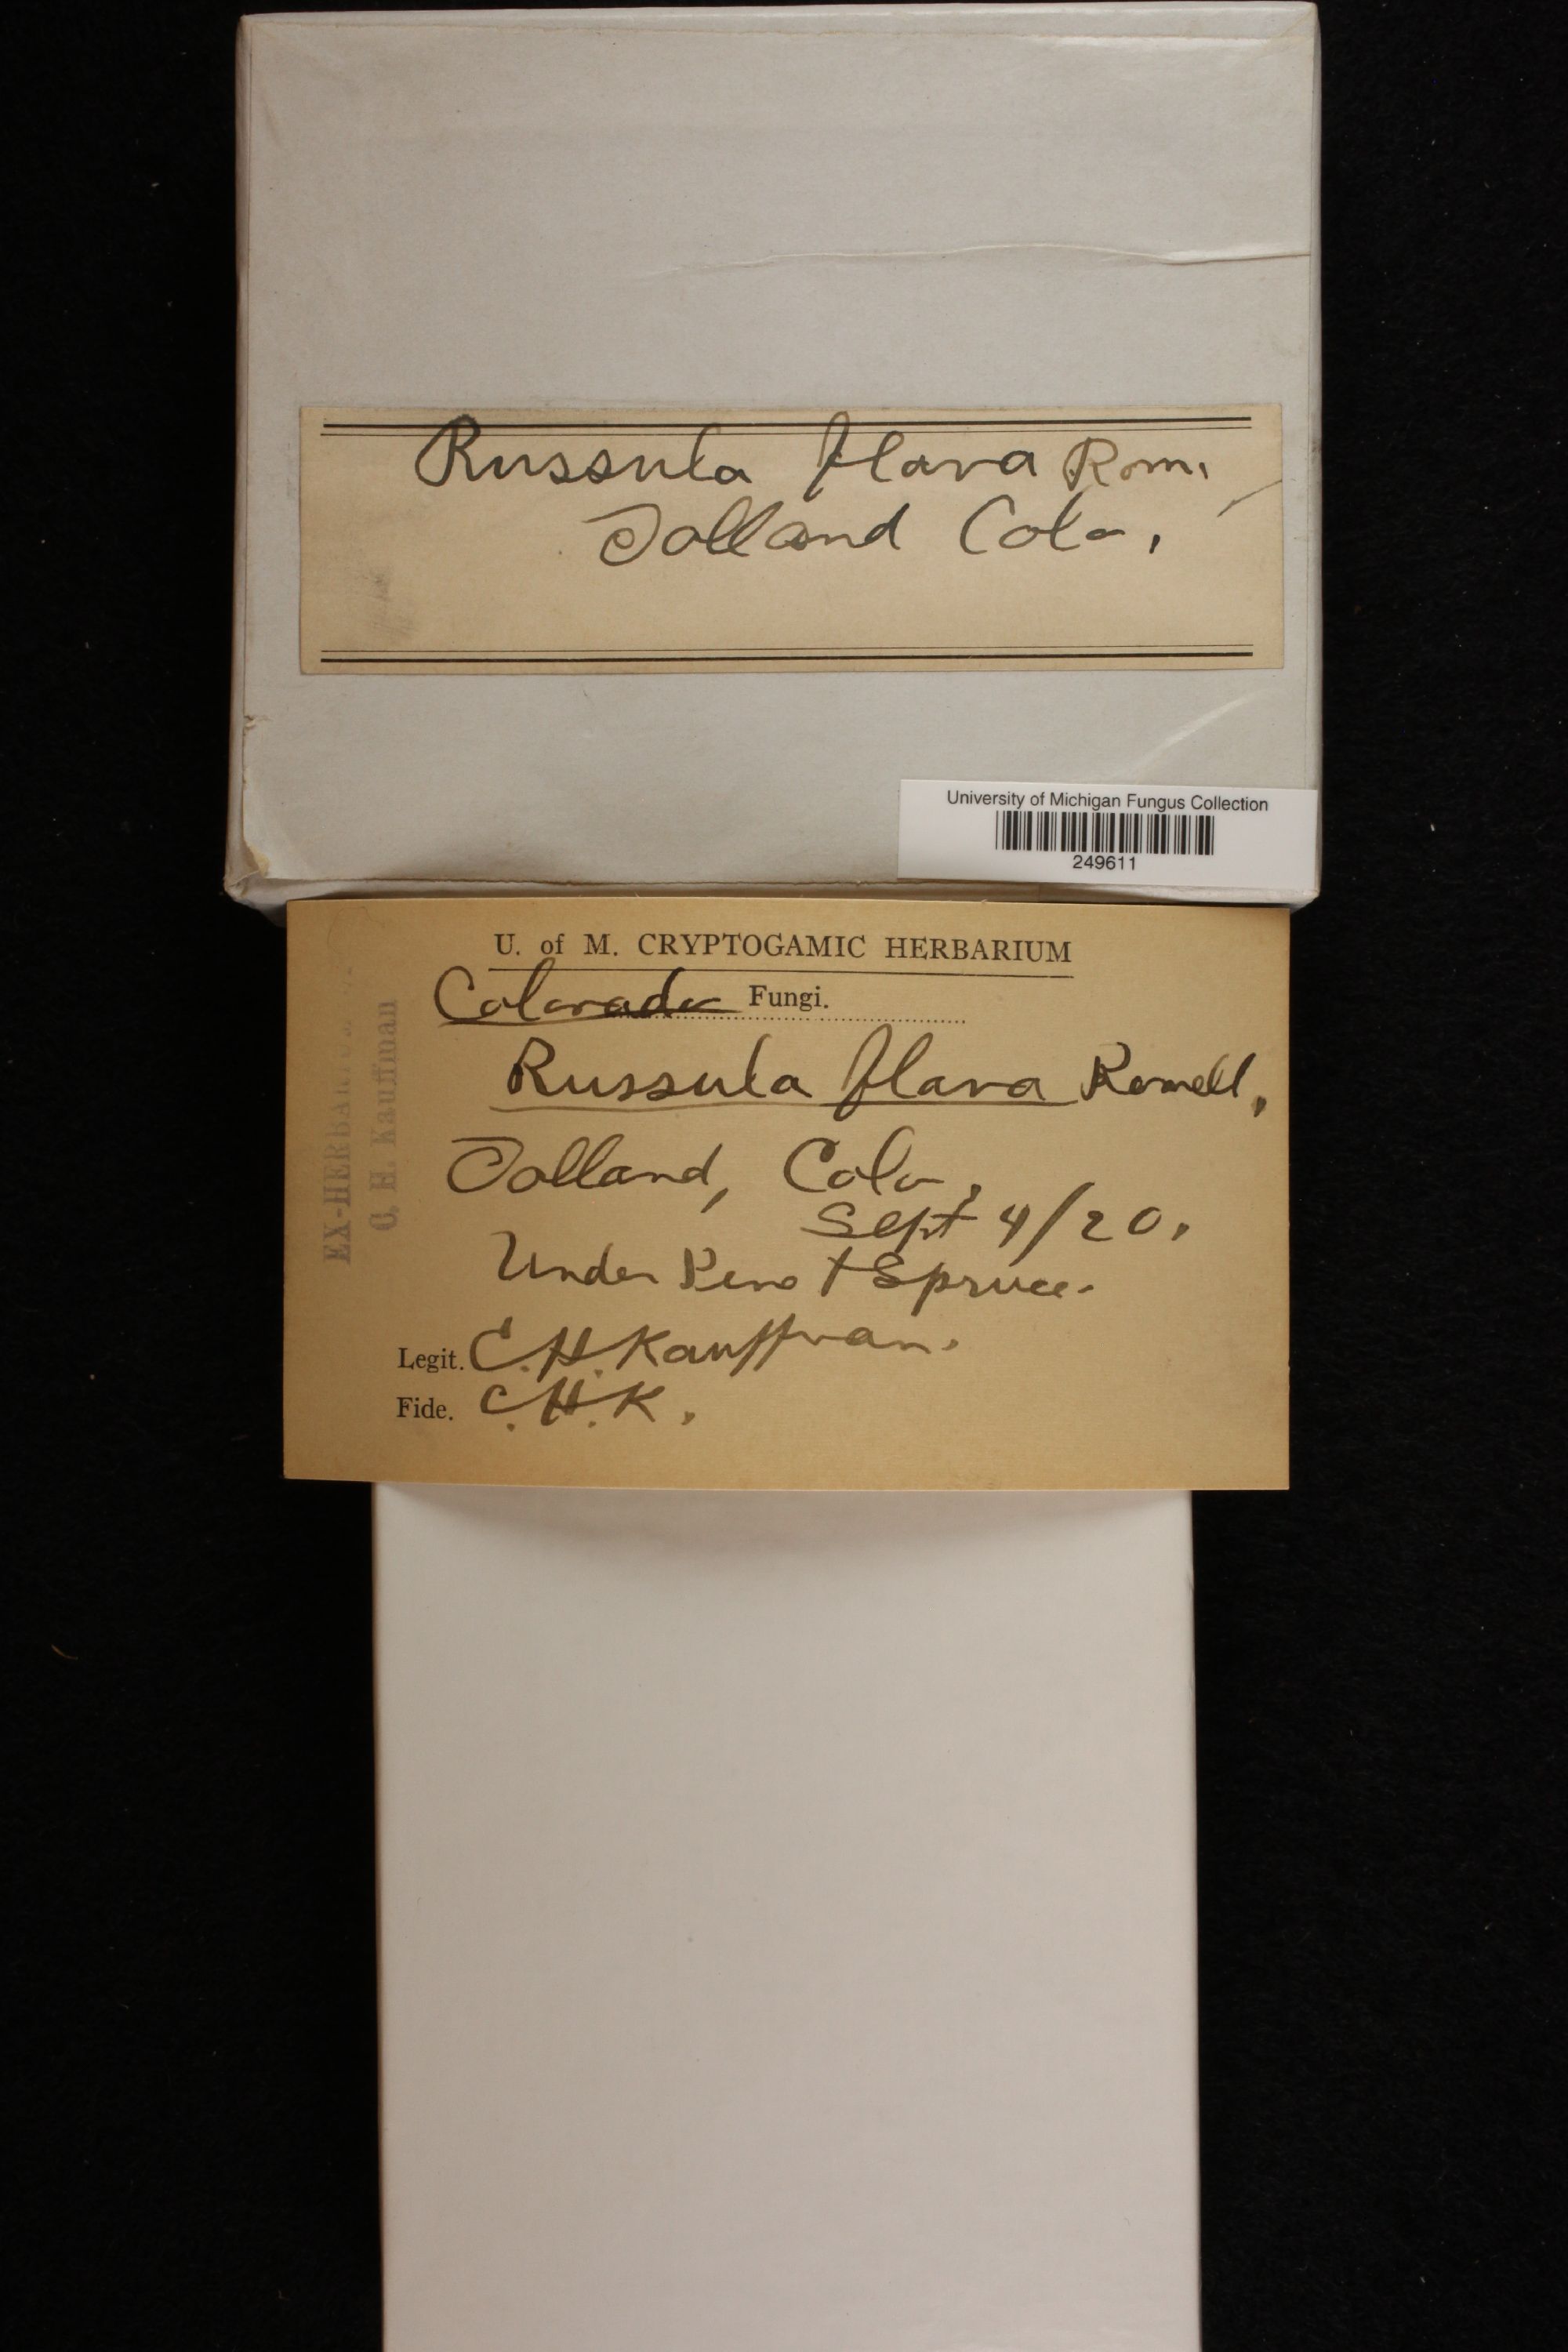 Russula flava Rom.
Tolland Colo.
University of Michigan Fungus Collection
249611
U. of M. CRYPTOGAMIC HERBARIUM
Colorado Fungi.
Russula flava Romell,
Tolland, Colo.
Sept 4/20.
Under Pine + Spruce.
Legit. C.H. Kauffman.
Fide. C.H.K.
C. H. Kauffman